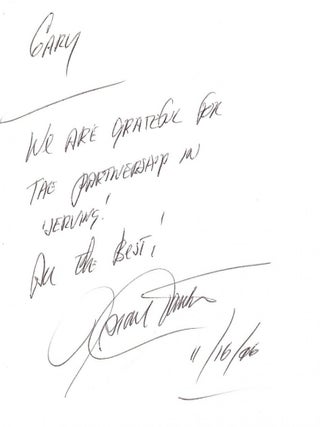 GARY
WE ARE GRATEFUL FOR
THE PARTNERSHIP IN
'SERVING!'
ALL THE BEST!
11/16/06